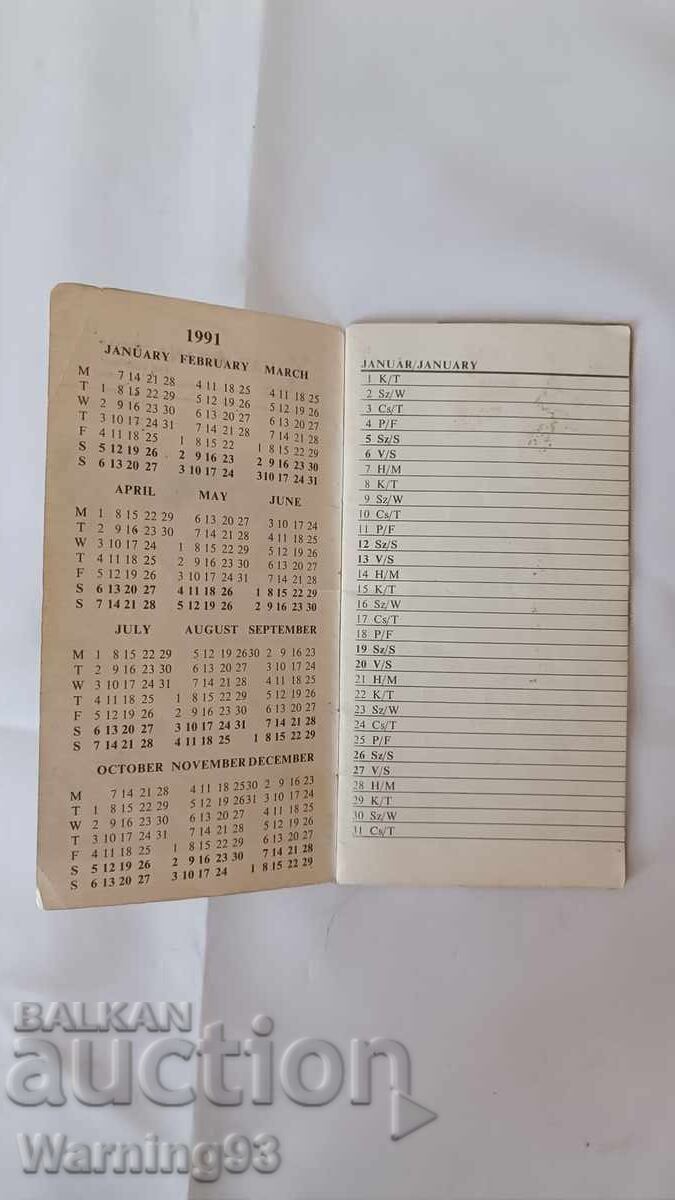 1991
JANUARY FEBRUARY MARCH
M 7 14 21 28 4 11 18 25 4 11 18 25
T 1 8 15 22 29 5 12 19 26 5 12 19 26
W 2 9 16 23 30 6 13 20 27 6 13 20 27
T 3 10 17 24 31 7 14 21 28 7 14 21 28
F 4 11 18 25 1 8 15 22 1 8 15 22 29
S 5 12 19 26 2 9 16 23 2 9 16 23 30
S 6 13 20 27 3 10 17 24 3 10 17 24 31
APRIL MAY JUNE
M 1 8 15 22 29 6 13 20 27 3 10 17 24
T 2 9 16 23 30 7 14 21 28 4 11 18 25
W 3 10 17 24 1 8 15 22 29 5 12 19 26
T 4 11 18 25 2 9 16 23 30 6 13 20 27
F 5 12 19 26 3 10 17 24 31 7 14 21 28
S 6 13 20 27 4 11 18 25 1 8 15 22 29
S 7 14 21 28 5 12 19 26 2 9 16 23 30
JULY AUGUST SEPTEMBER
M 1 8 15 22 29 5 12 19 26 30 2 9 16 23
T 2 9 16 23 30 6 13 20 27 3 10 17 24
W 3 10 17 24 31 7 14 21 28 4 11 18 25
T 4 11 18 25 1 8 15 22 29 5 12 19 26
F 5 12 19 26 2 9 16 23 30 6 13 20 27
S 6 13 20 27 3 10 17 24 31 7 14 21 28
S 7 14 21 28 4 11 18 25 1 8 15 22 29
OCTOBER NOVEMBER DECEMBER
M 7 14 21 28 4 11 18 25 30 2 9 16 23
T 1 8 15 22 29 5 12 19 26 31 3 10 17 24
W 2 9 16 23 30 6 13 20 27 4 11 18 25
T 3 10 17 24 31 7 14 21 28 5 12 19 26
F 4 11 18 25 1 8 15 22 29 6 13 20 27
S 5 12 19 26 2 9 16 23 30 7 14 21 28
S 6 13 20 27 3 10 17 24 1 8 15 22 29
JANUÁR/JANUARY
1 K/T
2 Sz/W
3 Cs/T
4 P/F
5 Sz/S
6 V/S
7 H/M
8 K/T
9 Sz/W
10 Cs/T
11 P/F
12 Sz/S
13 V/S
14 H/M
15 K/T
16 Sz/W
17 Cs/T
18 P/F
19 Sz/S
20 V/S
21 H/M
22 K/T
23 Sz/W
24 Cs/T
25 P/F
26 Sz/S
27 V/S
28 H/M
29 K/T
30 Sz/W
31 Cs/T
BALKAN
auction
Warning93